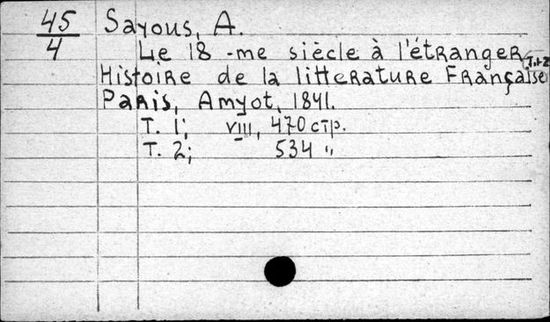 45/4 Sayous, A.
Le 18-me siècle à l'étranger, T.1-2
Histoire de la littérature Française
Paris, Amyot, 1841.
T. 1; VIII, 470 стр.
T. 2; 534 "